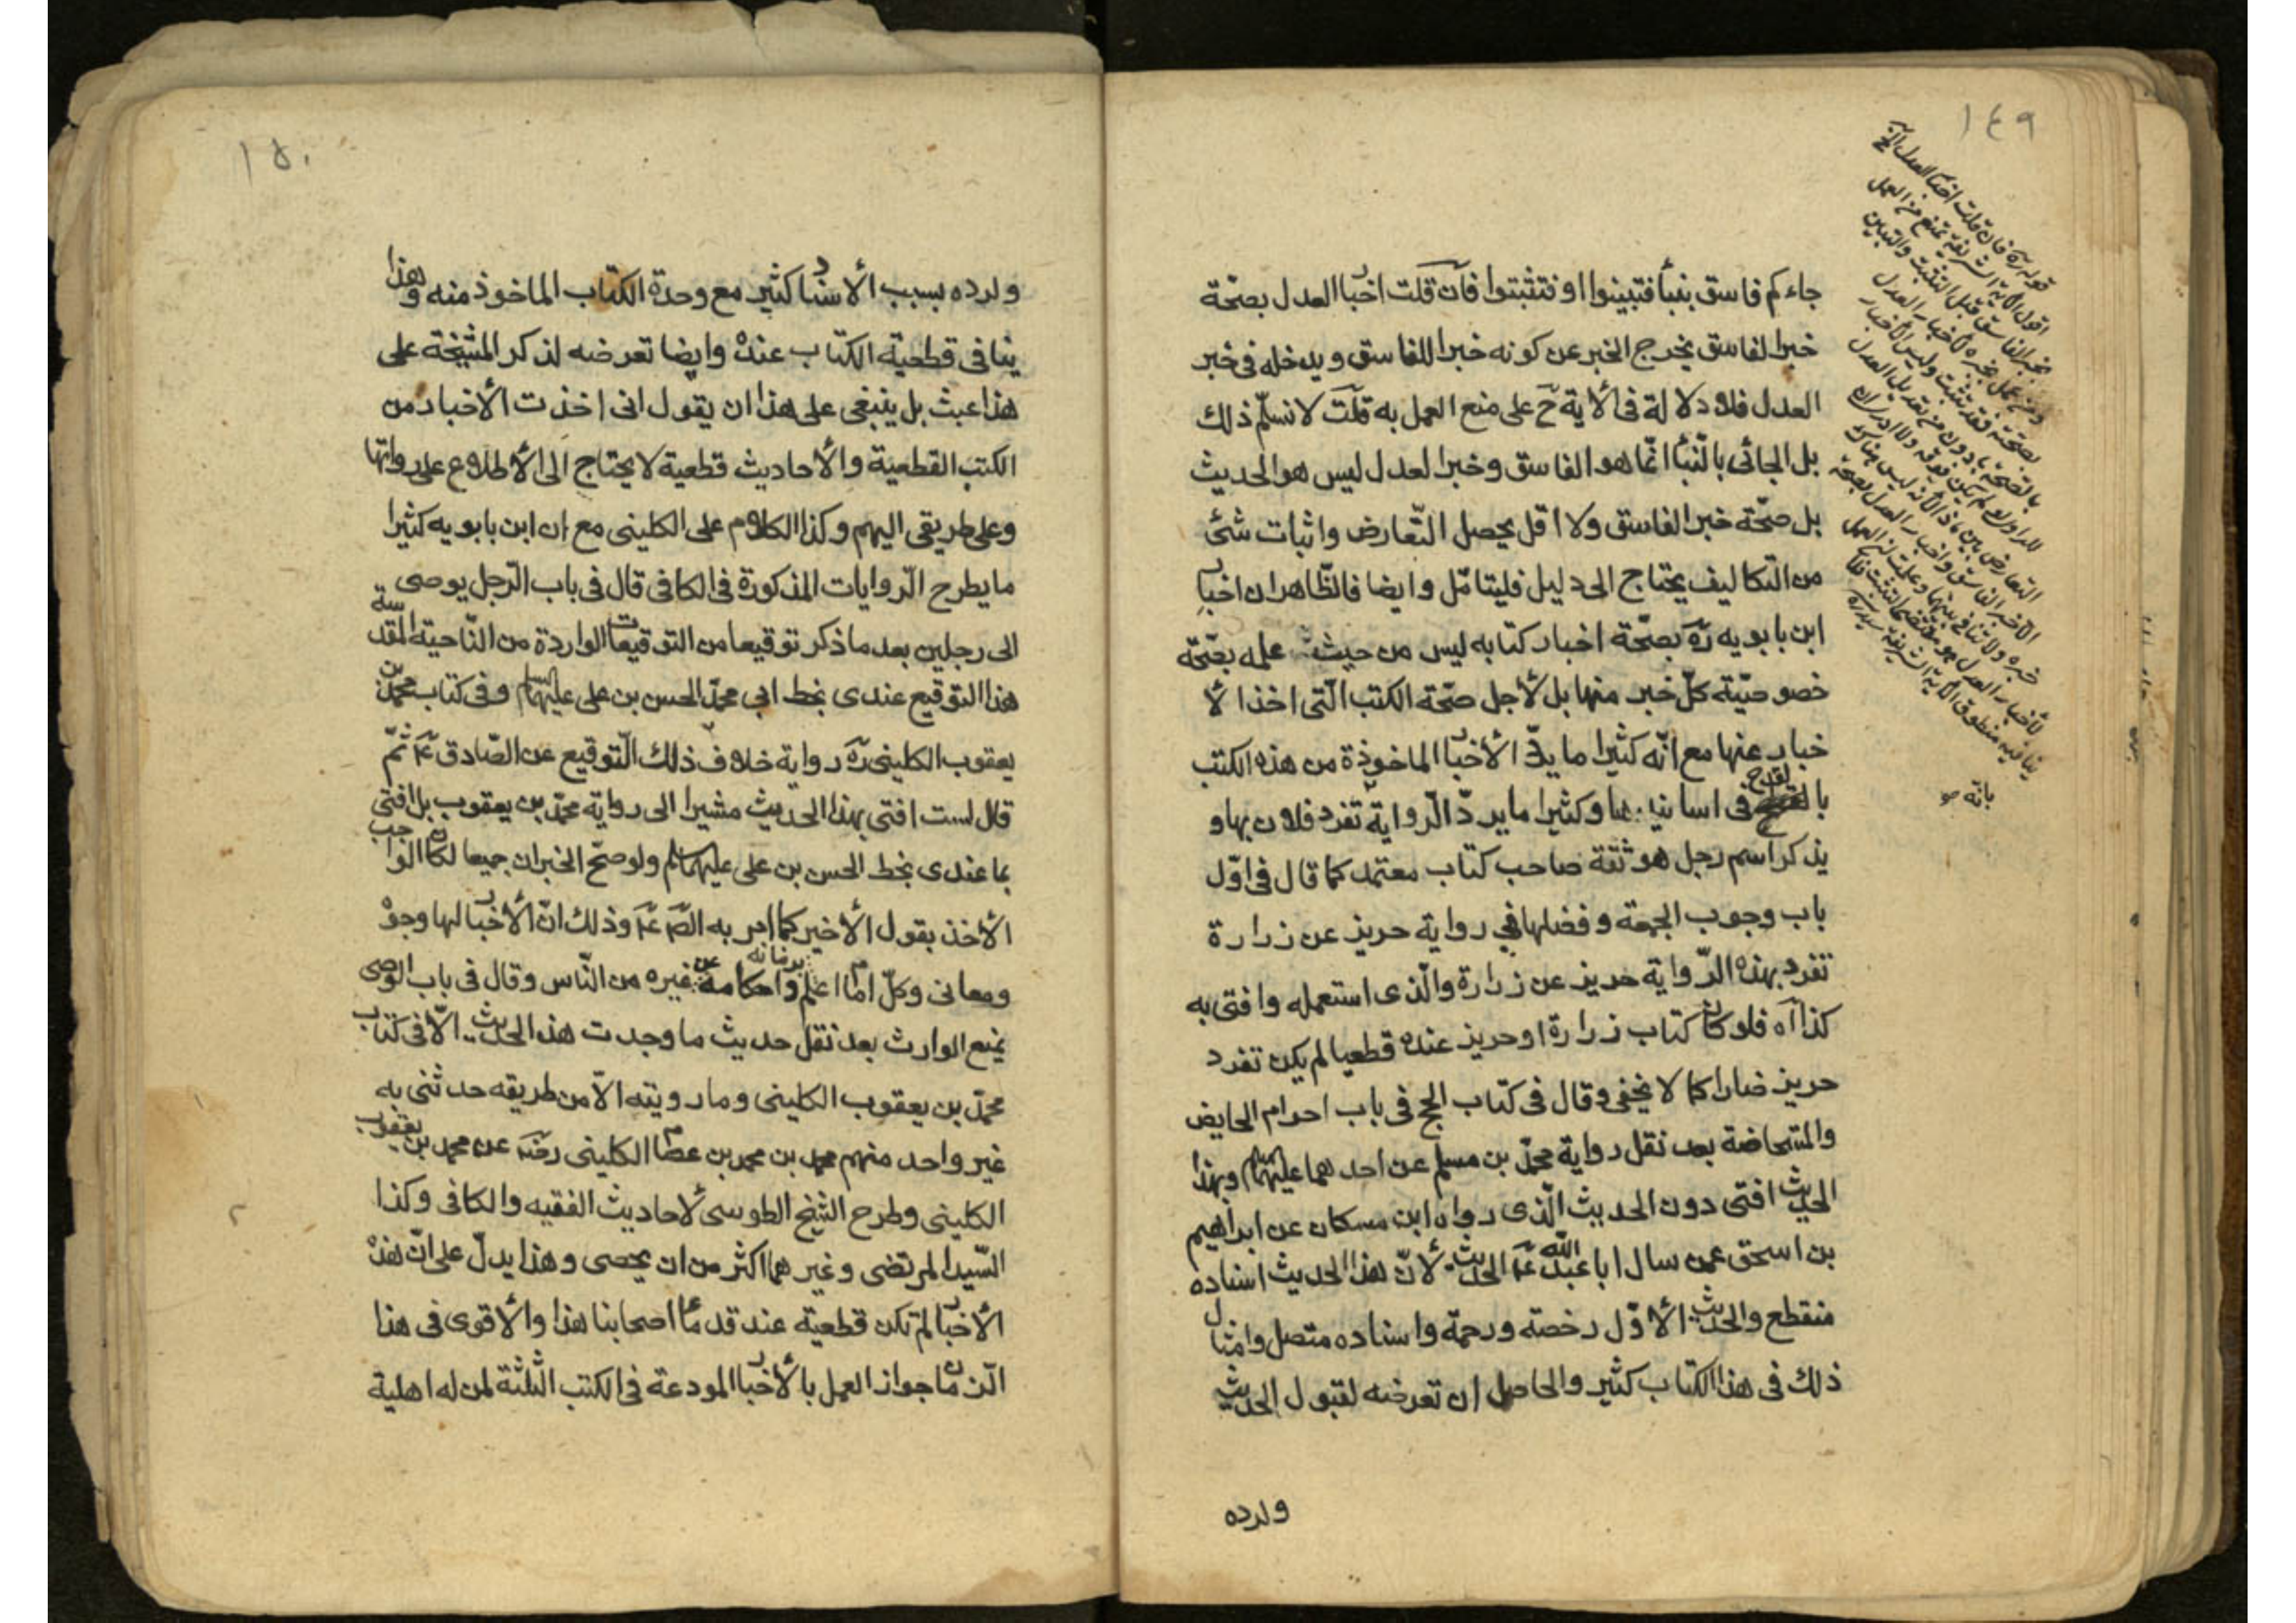 ١٤٩
جاءكم فاسق بنبأ فتبينوا او فتثبتوا فان قلت اخبار العدل بصحّة
خبر الفاسق يخرج الخبر عن كونه خبرا للفاسق ويدخله فى خبر
العدل فلا دلالة فى الأية ح على منع العمل به قلت لا نسلّم ذلك
بل الجائى بالنّبأ انّما هو الفاسق وخبر العدل ليس هو الحديث
بل صحّة خبر الفاسق ولا اقل يحصل التّعارض واثبات شئ
من التكاليف يحتاج الى دليل فليتامّل وايضا فالظّاهر ان اخبار
ابن بابويه ره بصحّة اخبار كتابه ليس من حيث علمه بصحّة
خصوصيّة كلّ خبر منها بل لأجل صحّة الكتب الّتى اخذ الأ
خبار عنها مع انّه كثيرا ما يردّ الأخبار الماخوذة من هذه الكتب
بالقدح فى اسانيدها وكثيرا ما يردّ الرّواية تفرد فلان بها و
يذكر اسم رجل هو ثقة صاحب كتاب معتمد كما قال فى اوّل
باب وجوب الجمعة وفضلها فى رواية حريز عن زرارة
تفرد بهذه الرّواية حريز عن زرارة والّذى استعمله وافتى به
كذا آه فلو كان كتاب زرارة او حريز عنده قطعيا لم يكن تفرد
حريز ضارا كما لا يخفى وقال فى كتاب الحج فى باب احرام الحايض
والمستحاضة بعد نقل رواية محمّد بن مسلم عن احدهما عليهما السلام وبهذا
الحديث افتى دون الحديث الّذى رواه ابن مسكان عن ابراهيم
بن اسحق عمن سال ابا عبد الله ع الحديث لأنّ هذا الحديث اسناده
منقطع والحديث الأوّل رخصة ورحمة واسناده متصل وامثال
ذلك فى هذا الكتاب كثير والحاصل ان تعرضه لقبول الحديث
ولرده
قوله ره فان قلت اخبار العدل الخ
اقول الأية الشريفة تمنع من العمل
بخبر الفاسق قبل التثبت والتبيين
بانّه
١٥٠
ولرده بسبب الأسناد كثير مع وحدة الكتاب الماخوذ منه وهذا
ينافى قطعية الكتاب عنده وايضا تعرضه لذكر المشيخة على
هذا عبث بل ينبغى على هذا ان يقول انى اخذت الأخبار من
الكتب القطعية والأحاديث قطعية لا يحتاج الى الأطلاع على رواتها
وعلى طريقى اليهم وكذا الكلام على الكلينى مع ان ابن بابويه كثيرا
ما يطرح الرّوايات المذكورة فى الكافى قال فى باب الرّجل يوصى
الى رجلين بعد ما ذكر توقيعا من التوقيعات الواردة من النّاحيّة المقدسة
هذا التوقيع عندى بخط ابي محمّد الحسن بن على عليهما السلام وفى كتاب محمّد بن
يعقوب الكلينى ره رواية خلاف ذلك التّوقيع عن الصّادق ع ثمّ
قال لست افتى بهذا الحديث مشيرا الى رواية محمّد بن يعقوب بل افتى
بما عندى بخط الحسن بن على عليهما سلم ولو صحّ الخبران جميعا لكان الواجب
الأخذ بقول الأخير كما امر به الصّ ع وذلك انّ الأخبار لها وجوه
ومعانى وكلّ امام اعلم بزمانه واحكامه من غيره من النّاس وقال فى باب الوصى
يمنع الوارث بعد نقل حديث ما وجدت هذا الحديث الاّ فى كتاب
محمّد بن يعقوب الكلينى وما رويته الاّ من طريقه حدثنى به
غير واحد منهم محمد بن محمد بن عصام الكلينى رضه عن محمد بن يعقوب
الكلينى وطرح الشّيخ الطوسى لأحاديث الفقيه والكافى وكذا
السّيد المرتضى وغيرهما اكثر من ان يحصى وهذا يدلّ على انّ هذه
الأخبار لم تكن قطعيّة عند قدماء اصحابنا هذا والأقوى فى هذا
الزمان جواز العمل بالأخبار المودعة فى الكتب الثّلثة لمن له اهلية